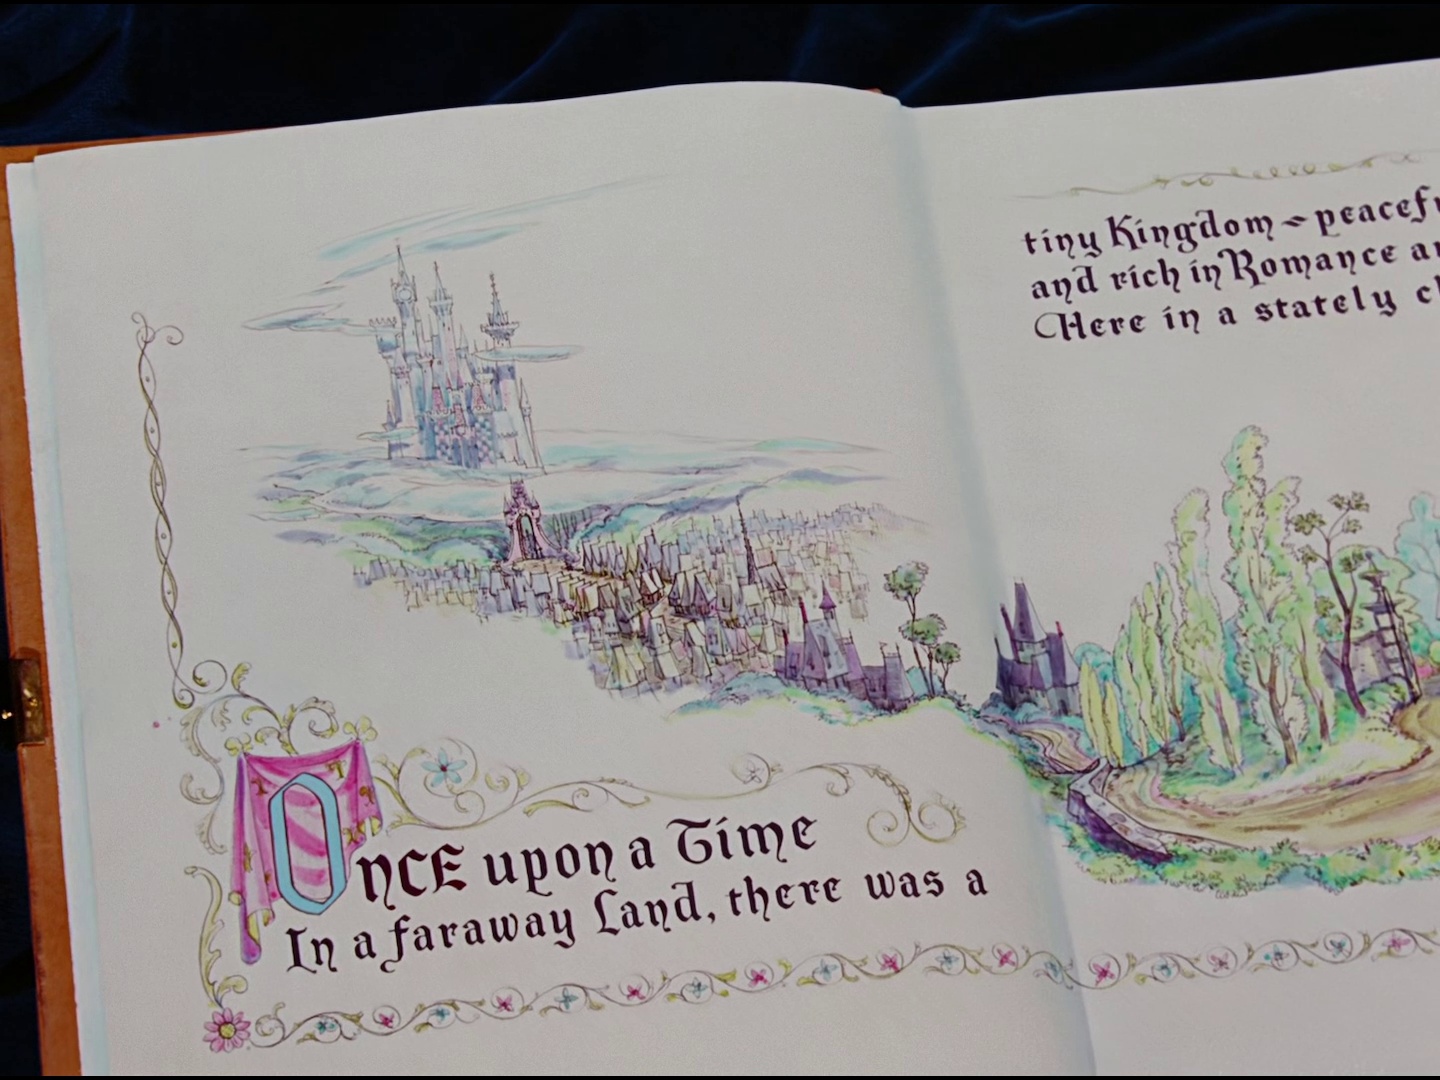 Once upon a Time
In a faraway Land, there was a
tiny Kingdom ~ peacef
and rich in Romance
Here in a stately